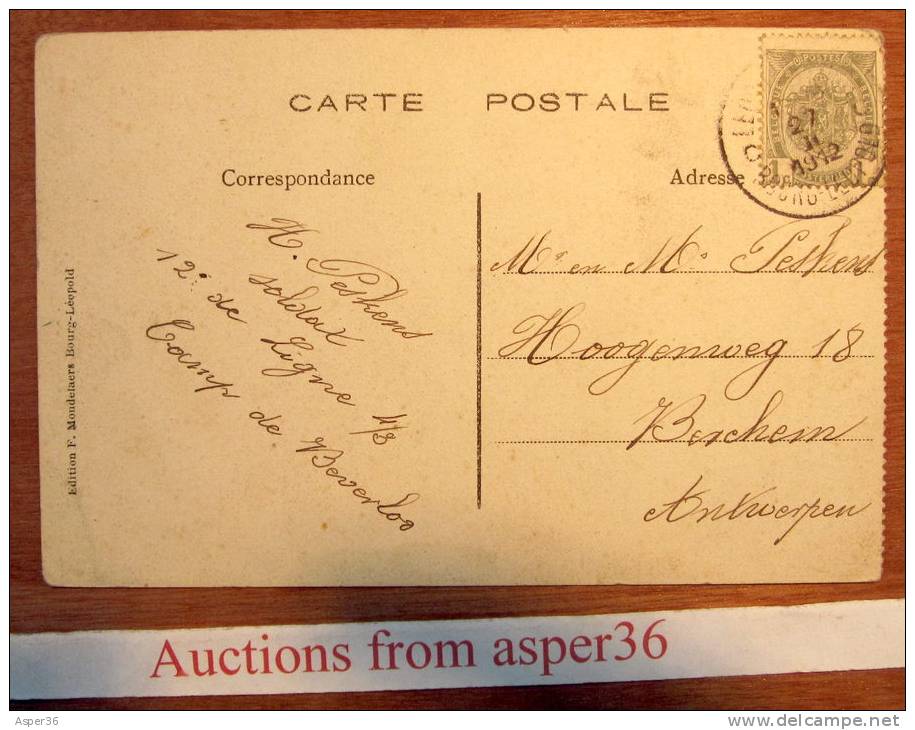 CARTE POSTALE
Correspondance
H. Peskens
soldat
12e de Ligne 4/3
Camp de Beverloo
Edition F. Mondelaers Bourg-Léopold
Adresse
27
1912
BOURG-LÉOPOLD
Mr en Me Peskens
Hoogenweg 18
Berchem
Antwerpen
Auctions from asper36
Asper36
www.delcampe.net